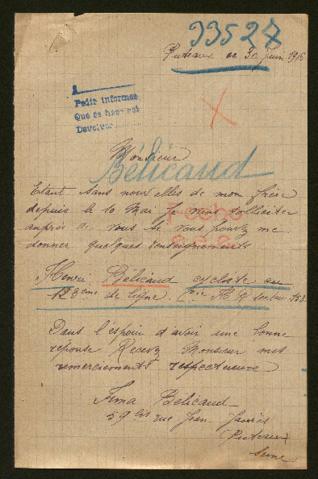 33527
Puteaux ce 30 juin 1916
Monsieur
Bélicaud
Etant sans nouvelles de mon frère
depuis le 10 Mai je viens solliciter
auprès de vous si vous pouvez me
donner quelques renseignements
Henri Bélicaud cycliste au
128ème de ligne
Dans l'espoir d'avoir une bonne
reponse Recevez Monsieur mes
remerciements respectueux
Bélicaud
59 bis rue Jean Jaurès
Puteaux
Seine